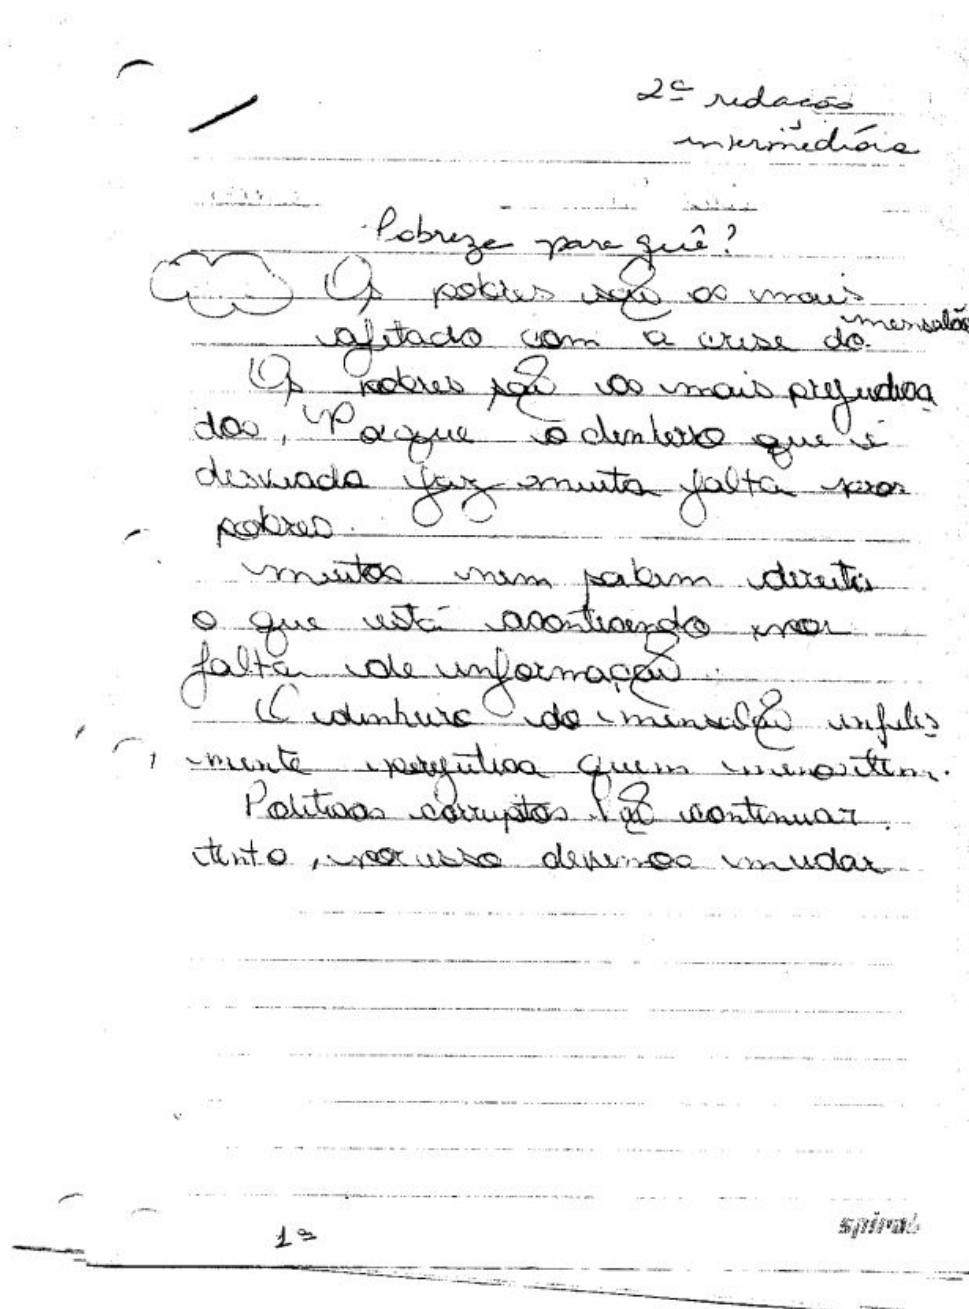 2ª redação
intermediária
Pobreza para quê?
Os pobres são os mais
afetado com a crise do mensalão
Os pobres são os mais prejudica
dos, Porque o dinheiro que é
desviado faz muita falta pros
pobres.
muitos nem sabem direito
o que está acontecendo por
falta de informação.
O dinheiro do mensalão infelis
mente prejudica quem menos tem.
Politicos corruptos vão continuar
tento, por isso devemos mudar
spiral
1ª